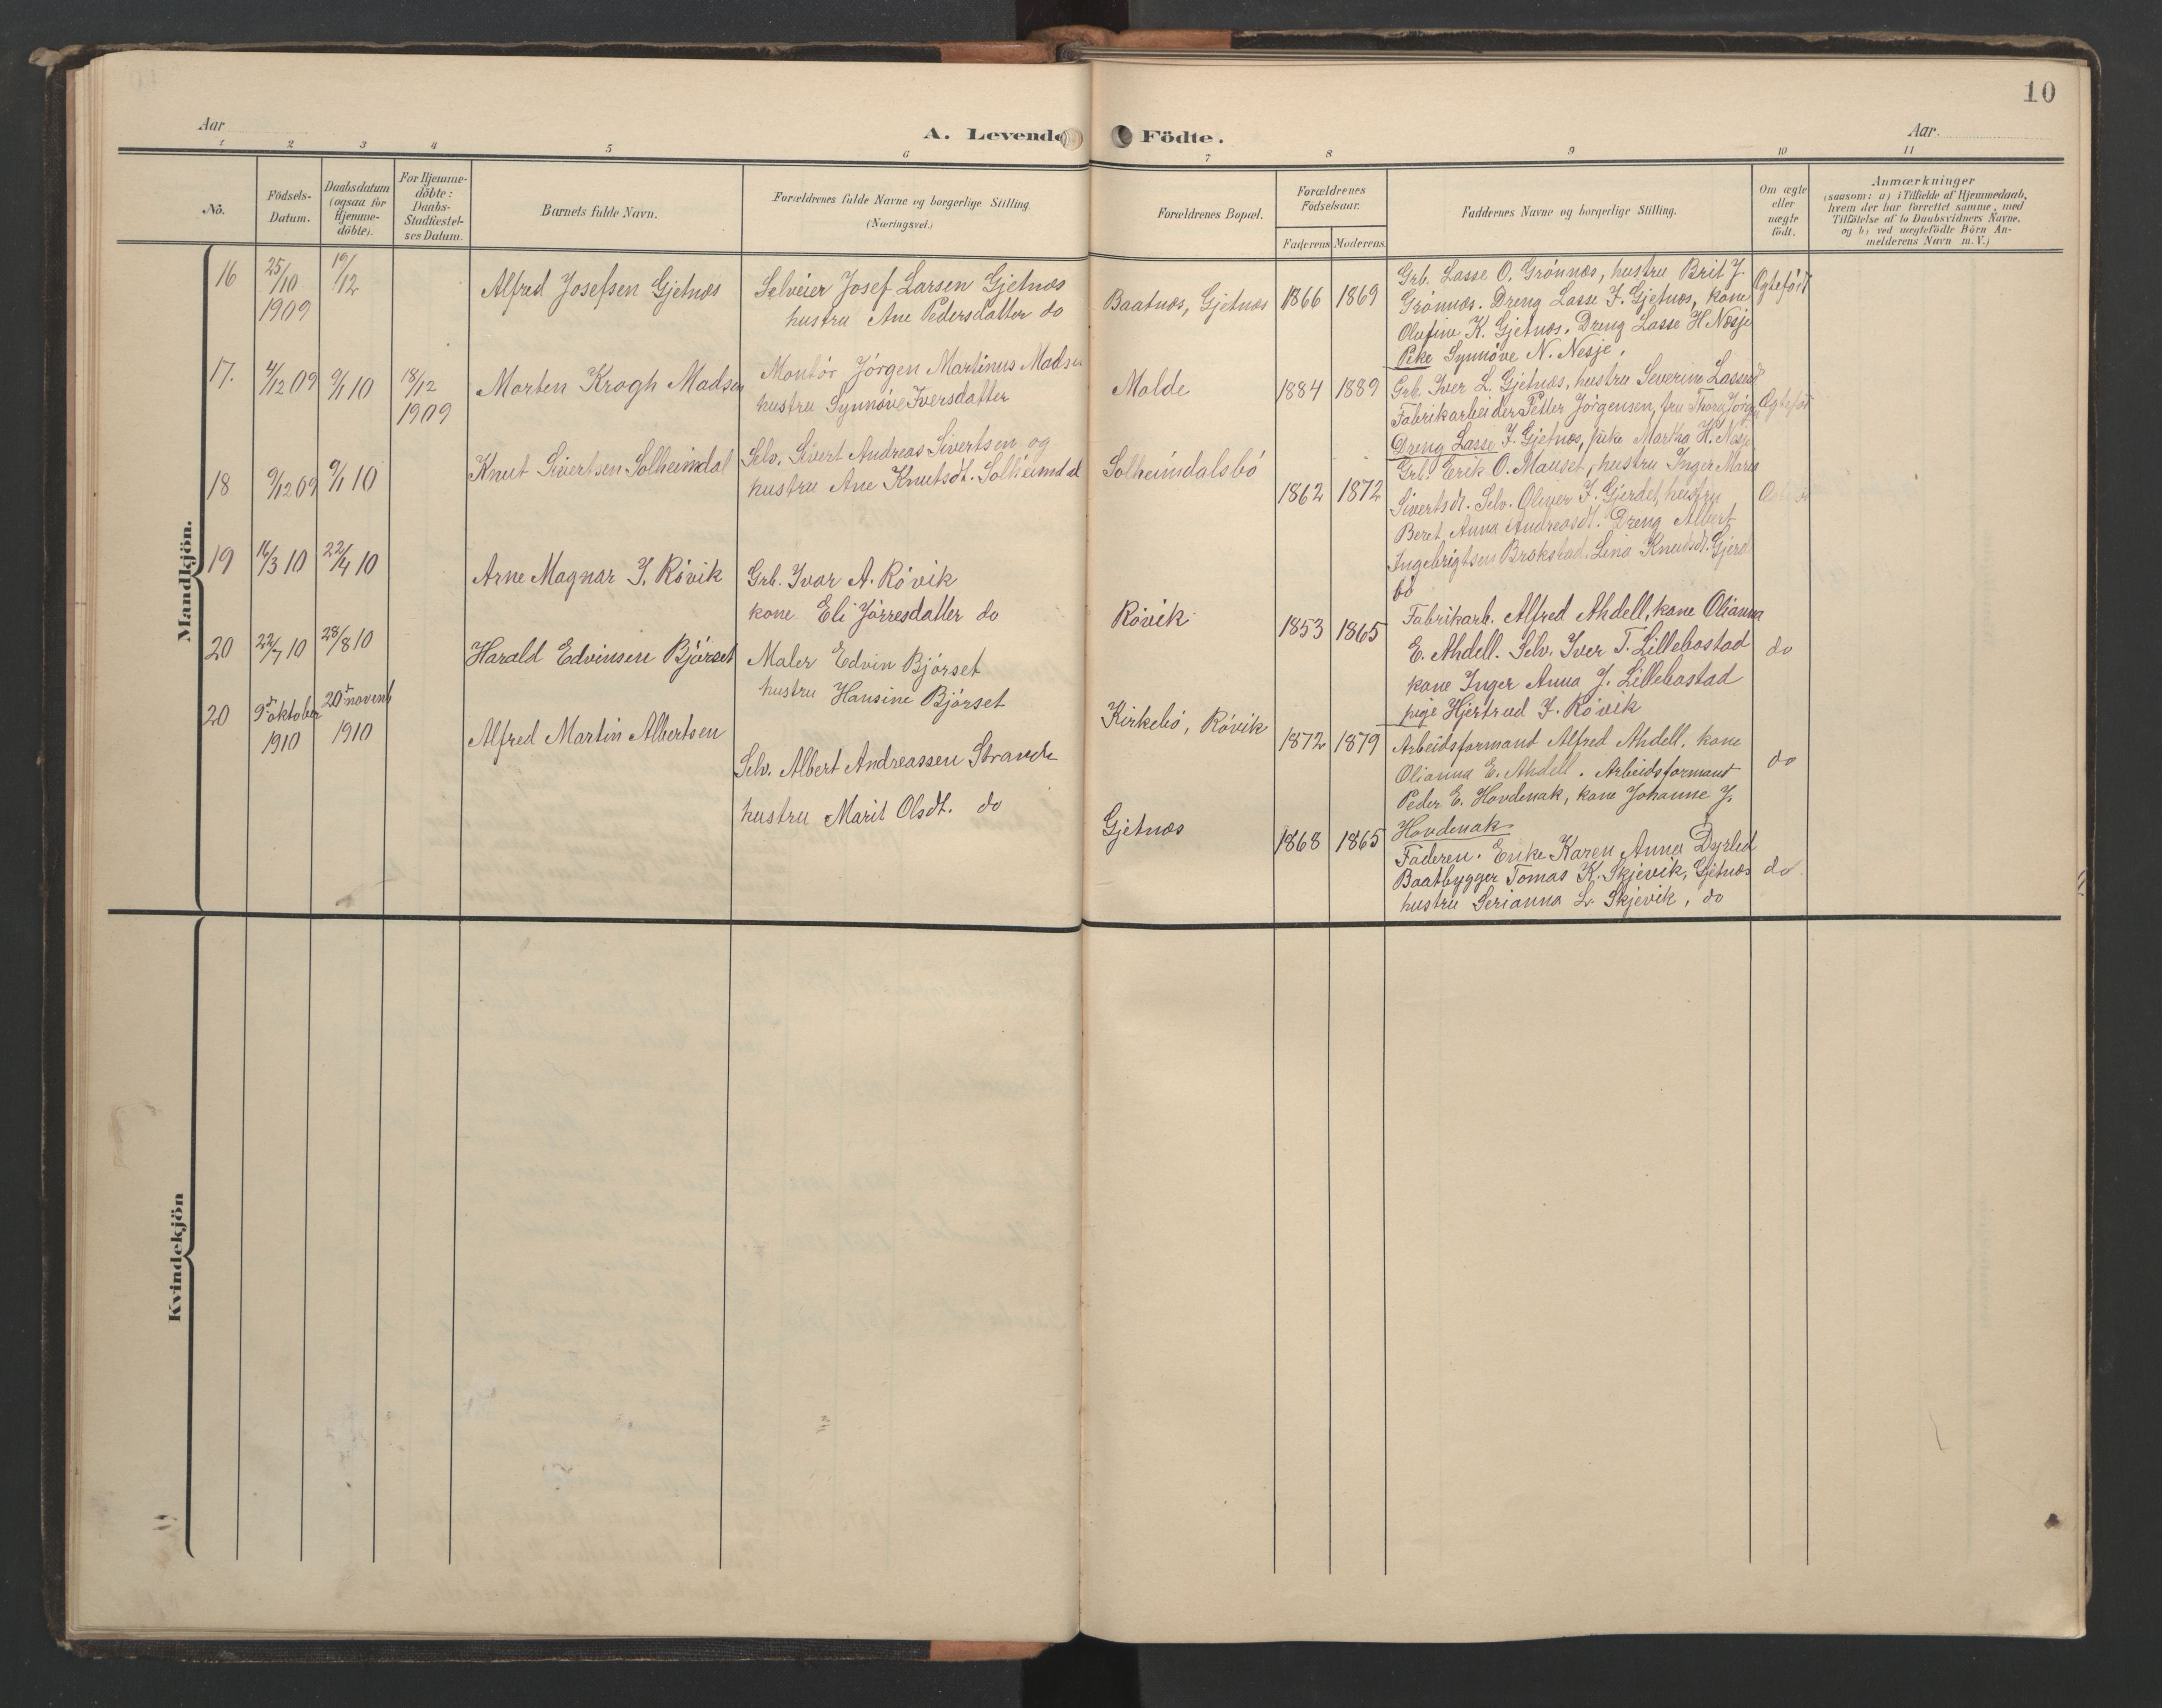 10
Aar
A. Levende Födte.
Aar.
1 2 3 4 5 6 7 8 9 10 11
No.
Födsels-
Datum.
Daabsdatum
(ogsaa for
Hjemme-
döbte).
For Hjemme-
döbte:
Daabs-
Stadfæstel-
ses Datum.
Barnets fulde Navn.
Forældrenes fulde Navne og borgerlige Stilling.
(Næringsvei.)
Forældrenes Bopæl.
Forældrenes
Födselsaar.
Faderens Moderens
Faddernes Navne og borgerlige Stilling.
Om ægte
eller
uægte
födt.
Anmærkninger
(saasom: a) i Tilfælde af Hjemmedaab,
hvem der har forrettet samme, med
Tilföielse af to Daabsvidners Navne,
og b) ved uægtefödte Börn An-
melderens Navn m. V.)
Mandkjön.
16
25/10
1909
19/12
Alfred Josefsen Gjetnæs
Selveier Josef Larsen Gjetnæs
hustru Ane Pedersdatter do
Baatnæs, Gjetnæs
1866 1869
Grb. Lasse O. Grönnæs, hustru Brit J.
Grönnæs. Dreng Lasse J. Gjetnæs, kone
Olufine K. Gjetnæs. Dreng Lasse H. Nesje
Pike Synnöve N. Nesje.
Ægtefödt
17.
4/12 09
9/1 10
18/12
1909
Morten Krogh Madsen
Montör Jörgen Martinus Madsen
hustru Synnöve Iversdatter
Molde
1884 1889
Grb. Iver L. Gjetnæs, hustru Severine Lassesd
Fabrikarbeider Petter Jörgensen, fru Thora Jörg
Dreng Lasse J. Gjetnæs, pike Martha H. Nesje
Ægtefödt
18
9/12 09
9/1 10
Knut Sivertsen Solheimdal
Selv. Sivert Andreas Sivertsen og
hustru Ane Knutsdt. Solheimdal
Solheimdalsbö
1862 1872
Grb. Erik O. Mauset, hustru Inger Marie
Sivertsdt. Selv. Oliver J. Gjerdet, hustru
Beret Anna Andreasdt. Dreng Albert
Ingebrigtsen Brokstad. Lina Knutsdt. Gjerd
bö
19
16/3 10
22/4 10
Arne Magnar I. Rövik
Grb. Ivar A. Rövik
kone Eli Jörresdatter do
Rövik
1853 1865
Fabrikarb. Alfred Ahdell, kone Olianna
E. Ahdell. Selv. Iver T. Lillebostad
kone Inger Anna J. Lillebostad
pige Hjertrud I. Rövik
do
20
22/7 10
28/8 10
Harald Edvinsen Björset
Maler Edvin Björset
hustru Hansine Björset
Kirkebö, Rövik
1872 1879
Arbeidsformand Alfred Ahdell, kone
Olianna E. Ahdell. Arbeidsformand
Peder E. Hovdenak, kone Johanne J.
Hovdenak
do
20
9d oktober
1910
20d novemb
1910
Alfred Martin Albertsen
Selv. Albert Andreassen Strande
hustru Marit Olsdt. do
Gjetnæs
1868 1865
Faderen. Enke Karen Anna Dyrlid
Baatbygger Tomas K. Skjevik, Gjetnæs
hustru Serianna L. Skjevik, do
do
Kvindekjön